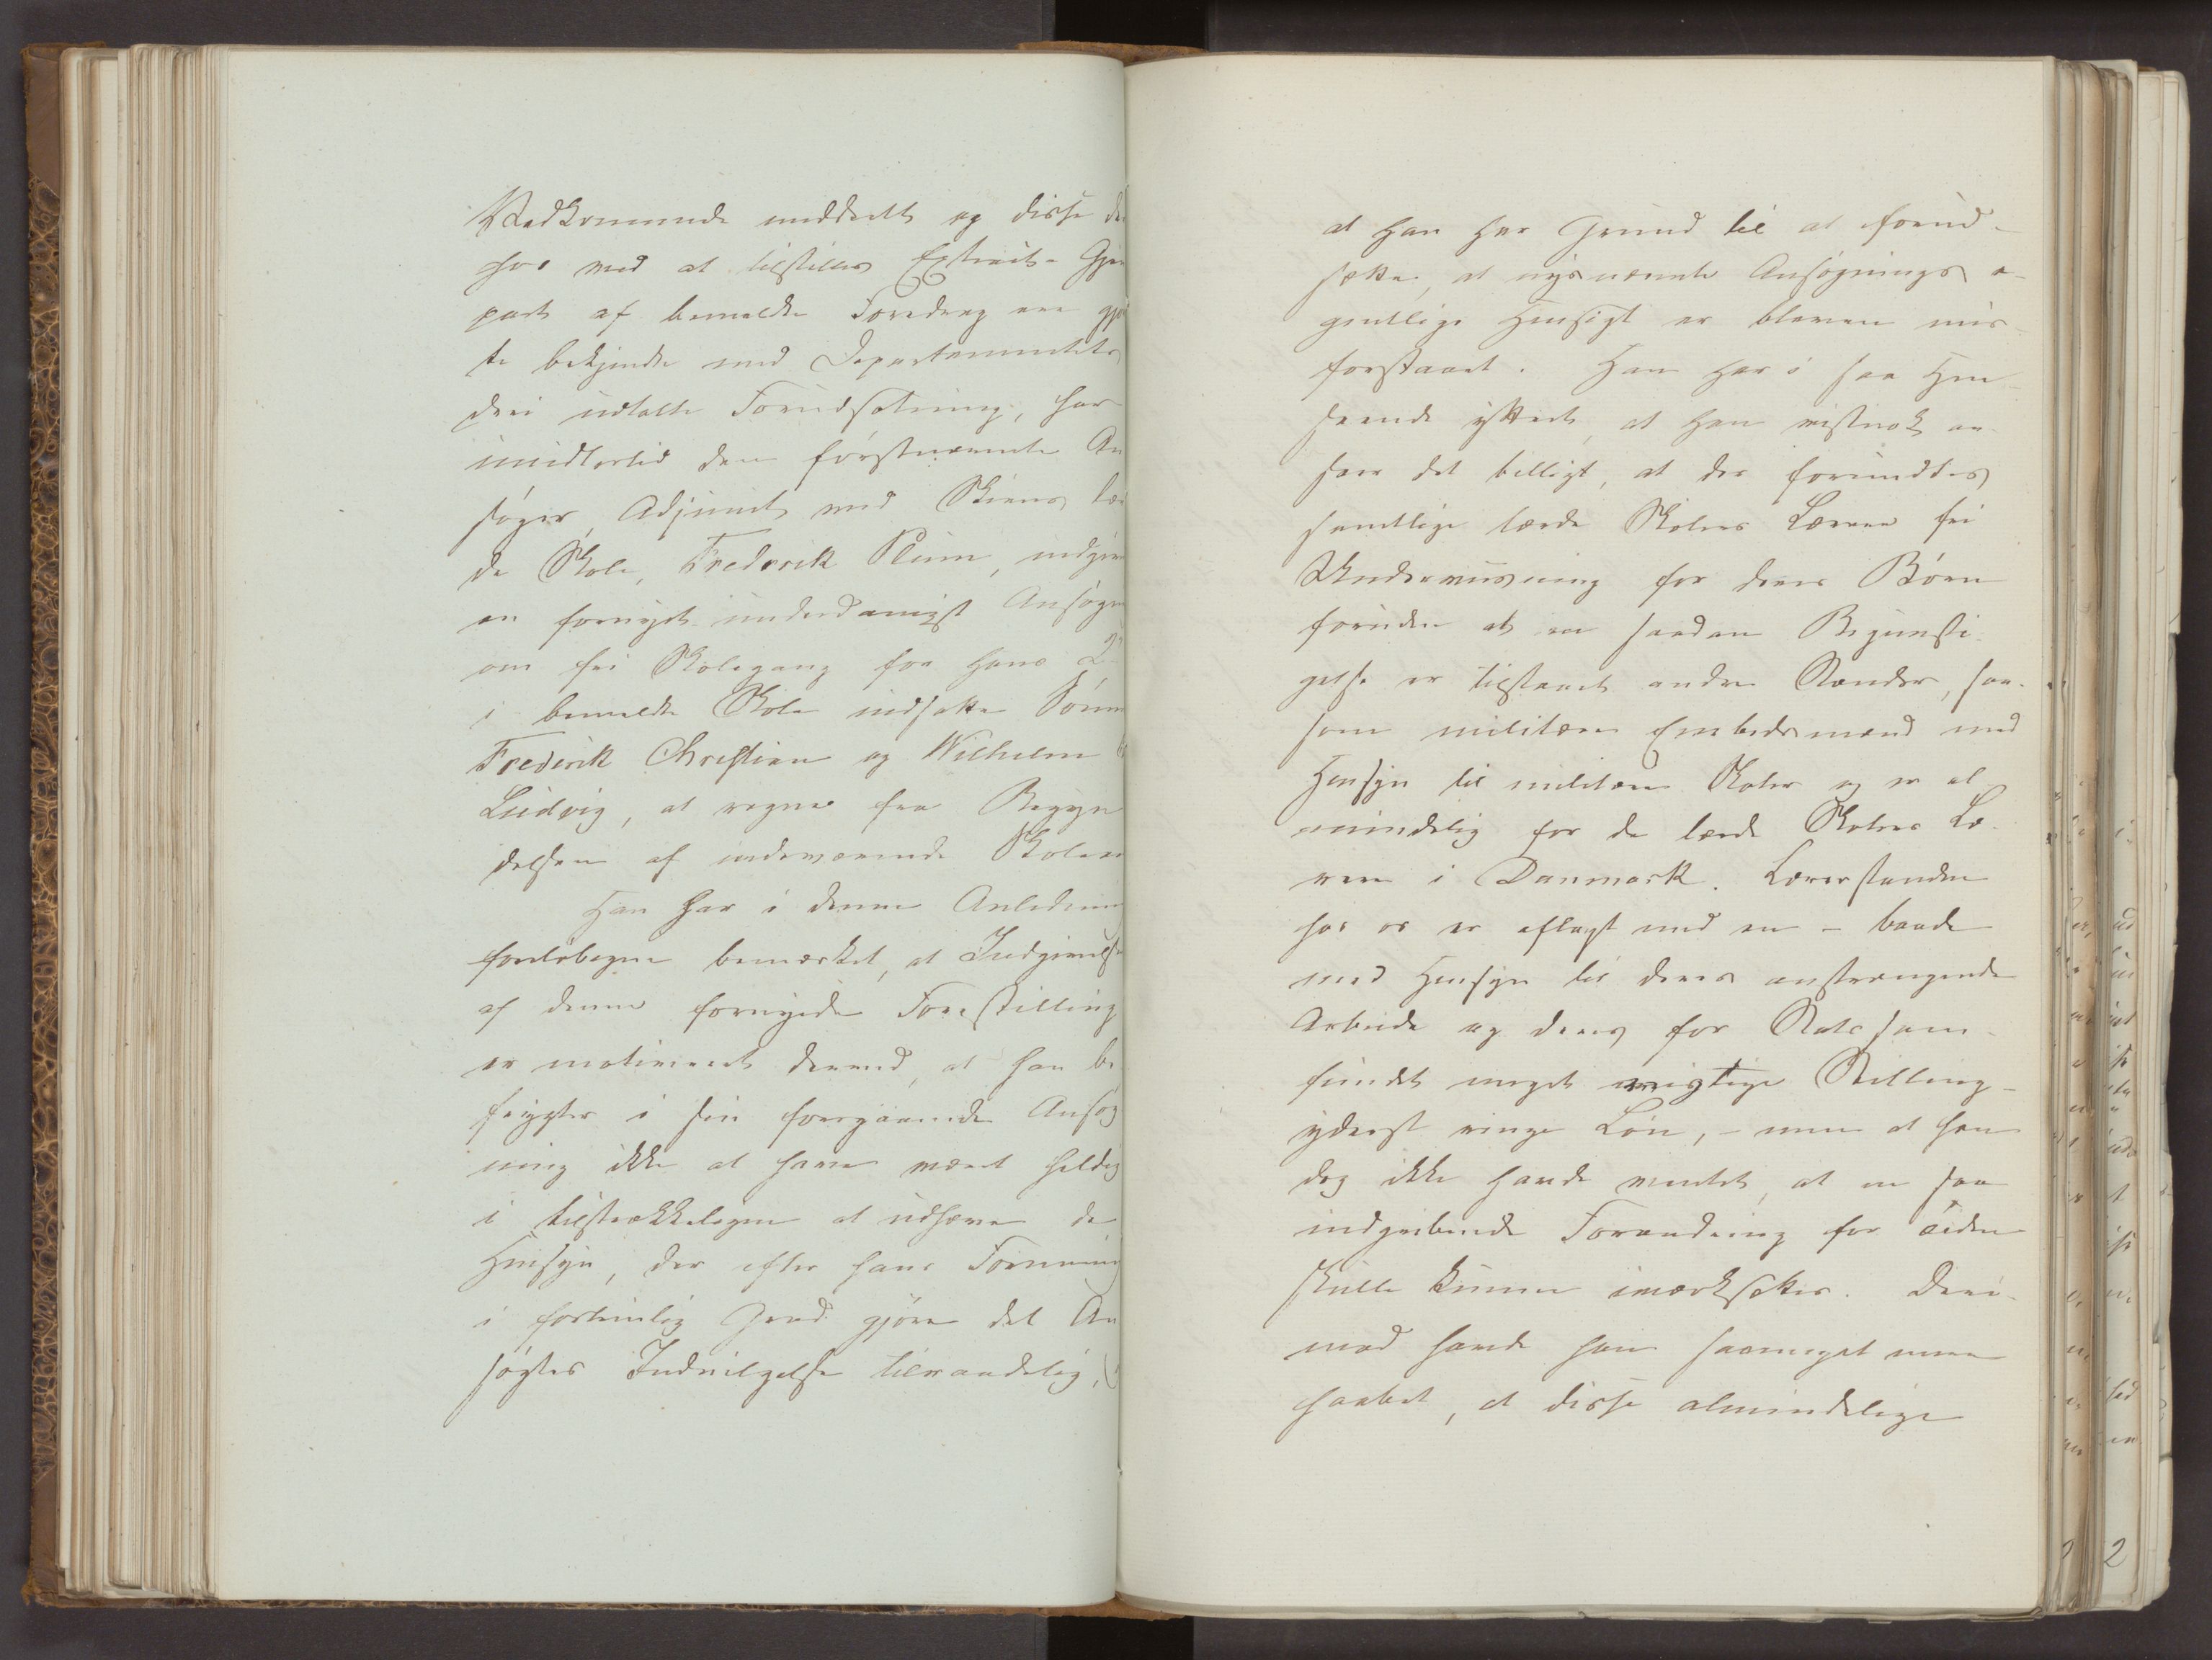 Vedkommende meddeelt og disse de
hos ved at tilstilles Extract-Gjen
part af bemeldte Foredrag ere gjor
te bekjendte med Departementets
deri udtalte Forudsætning, har
imidlertid den førstnævnte An
søger, Adjunct ved Skiens lær
de Skole, Frederik Plum, indgivet
en fornyet underdanigst Ansøgn
om fri Skolegang for hans 2
i bemeldte Skole indsatte Sønner
Frederik Christian og Wilhelm
Ludvig, at regne fra Begyn
delsen af indeværende Skoleaar
Han har i denne Anledning
foreløbigen bemærket, at Indgivelse
af denne fornyede Forestilling
er motiveret derved, at han be
frygter i sin foregaaende Ansøg
ning ikke at have været heldig
i tilstrækkeligen at udhæve de
Hensyn, der efter hans Formening
i fortrinlig Grad gjøre det An
søgtes Indvilgelse tilraadelig,
at han har Grund til at forud-
sætte, at nysnævnte Ansøgnings e-
gentlige Hensigt er bleven mis-
forstaaet. Han har i saa Hen-
seende yttret, at han vistnok an-
seer det billigt, at der forundtes
samtlige lærde Skolers Lærere fri
Underviisning for deres Børn
foruden at en saadan Begunsti-
gelse er tilstaaet andre Stænder, saa-
som militære Embedsmænd med
Hensyn til militære Skoler og er al-
mindelig for de lærde Skolers Læ-
rere i Danmark. Lærerstanden
hos os er aflagt med en - baade
med Hensyn til deres anstrængende
Arbeide og deres for Statssam-
fundet meget vigtige Stilling -
yderst ringe Løn, - men at han
dog ikke havde ventet, at en saa
indgribende Forandring for Tiden
skulle kunne iværksættes. Deri-
mod havde han saameget mere
haabet, at disse almindelige